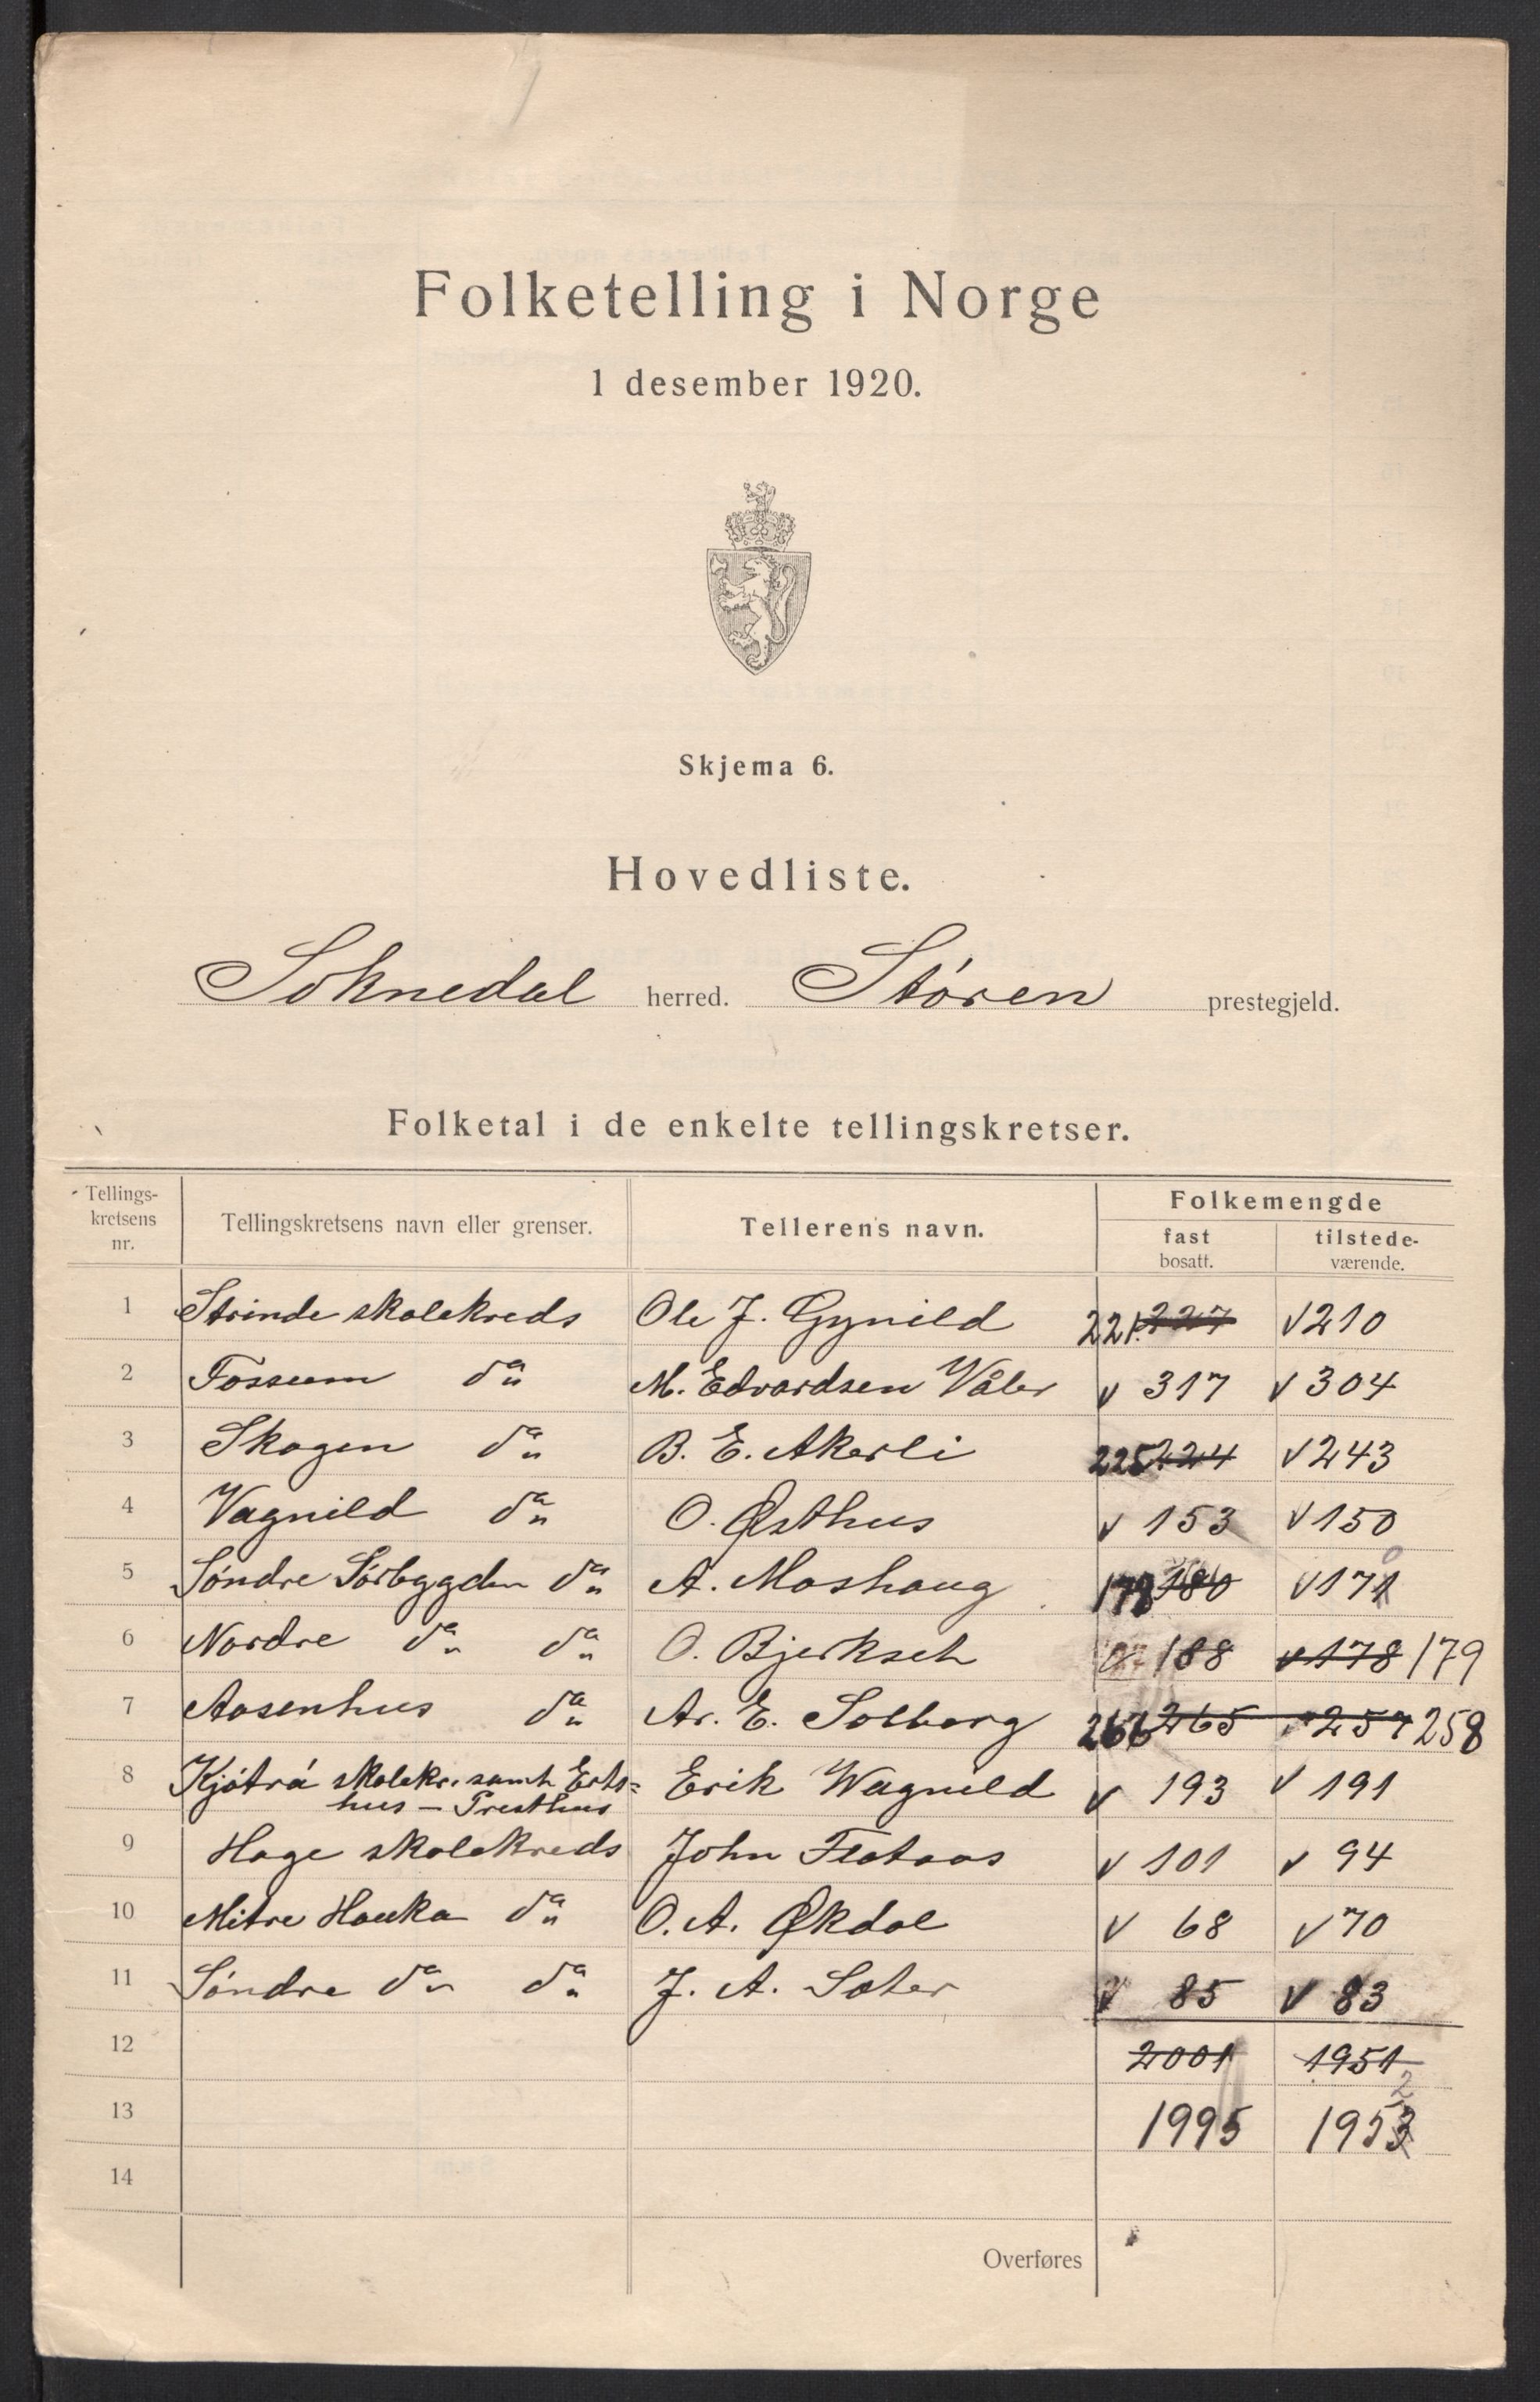 Folketelling i Norge
1 desember 1920.
Skjema 6.
Hovedliste.
Soknedal herred. Støren prestegjeld.
Folketal i de enkelte tellingskretser.
Tellings-kretsens nr. Tellingskretsens navn eller grenser. Tellerens navn. Folkemengde
fast bosatt. tilstede-værende.
1 Strinde skolekreds Ole J. Gynild 221. 227 √ 210
2 Fossum do M. Edvardsen Våler √ 317 √ 304
3 Skogen do B. E. Akerli 225 224 √ 243
4 Vagnild do O. Østhus √ 153 √ 150
5 Søndre Sørbygden do A. Moshaug 178 180 √ 171 0
6 Nordre do do O. Bjerkseth 188 √ 178 179
7 Aasenhus do Ar. E. Solberg 266 265 √ 257 258
8 Kjøtrå skolekr. samt Erts=
hus – Presthus Erik Wagnild √ 193 √ 191
9 Hage skolekreds John Flataas √ 101 √ 94
10 Mitre Hauka do O. A. Økdal √ 68 √ 70
11 Søndre do do J. A. Soter √ 85 √ 83
12 2001 1951
13 1995 1953 2
14
Overføres